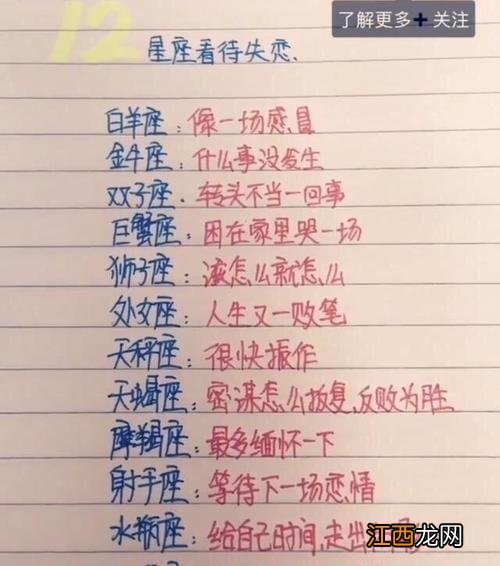 了解更多+关注
12
星座看待失恋.
白羊座：像一场感冒
金牛座：什么事没发生
双子座.转头不当一回事
巨蟹座：困在家里哭一场
狮子座：该怎么就怎么
处女座：人生又一败笔
天秤座：很快振作
天蝎座：密谋怎么报复,反败为胜
摩羯座：最多缅怀一下
射手座：等待下一场恋情
水瓶座：给自己时间,走出
江西龙网